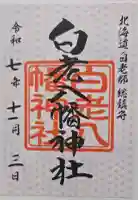 北海道白老郡 総鎮守
白老八幡神社
白老八
幡神社
令和七年十一月三日